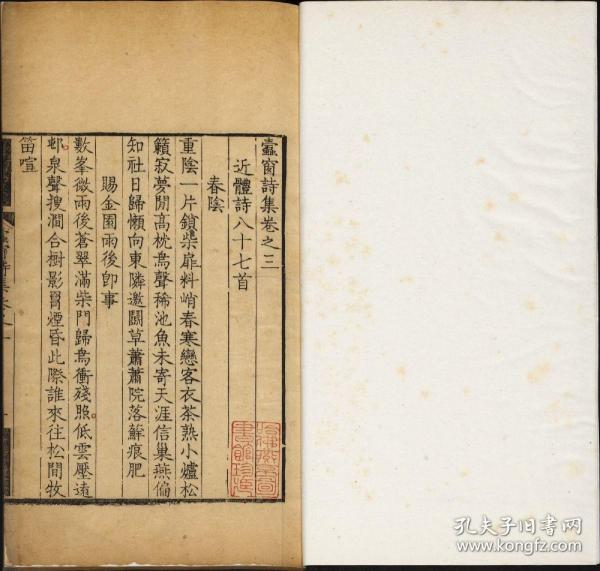 蠧窗詩集卷之三
近體詩八十七首
春陰
重陰一片鎖柴扉料峭春寒戀客衣茶熟小爐松
籟寂夢閒高枕鳥聲稀池魚未寄天涯信巢燕偏
知社日歸懶向東隣邀鬭草蕭蕭院落蘚痕肥
賜金園雨後卽事
數峯微雨後蒼翠滿柴門歸鳥衝殘照低雲壓遠
邨泉聲搜澗合樹影買煙昏此際誰來往松間牧
笛喧
孔夫子旧书网
www.kongfz.com